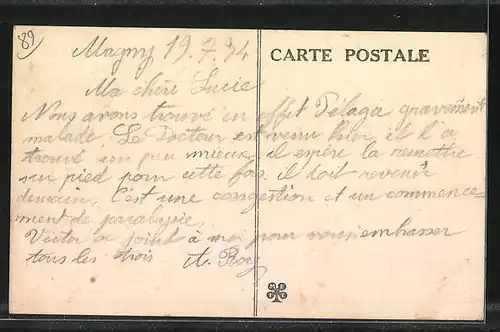 89
Magny 19.7.34
CARTE POSTALE
Ma chère Lucie
Nous avons trouvé en effet Pélagie gravement
malade. Le Docteur est venu hier il l'a
trouvé un peu mieux, il espère la remettre
sur pied pour cette fois. il doit revenir
demain. C'est une congestion et un commence-
ment de paralysie.
Victor se joint à moi pour vous embrasser
tous les trois A. Roy